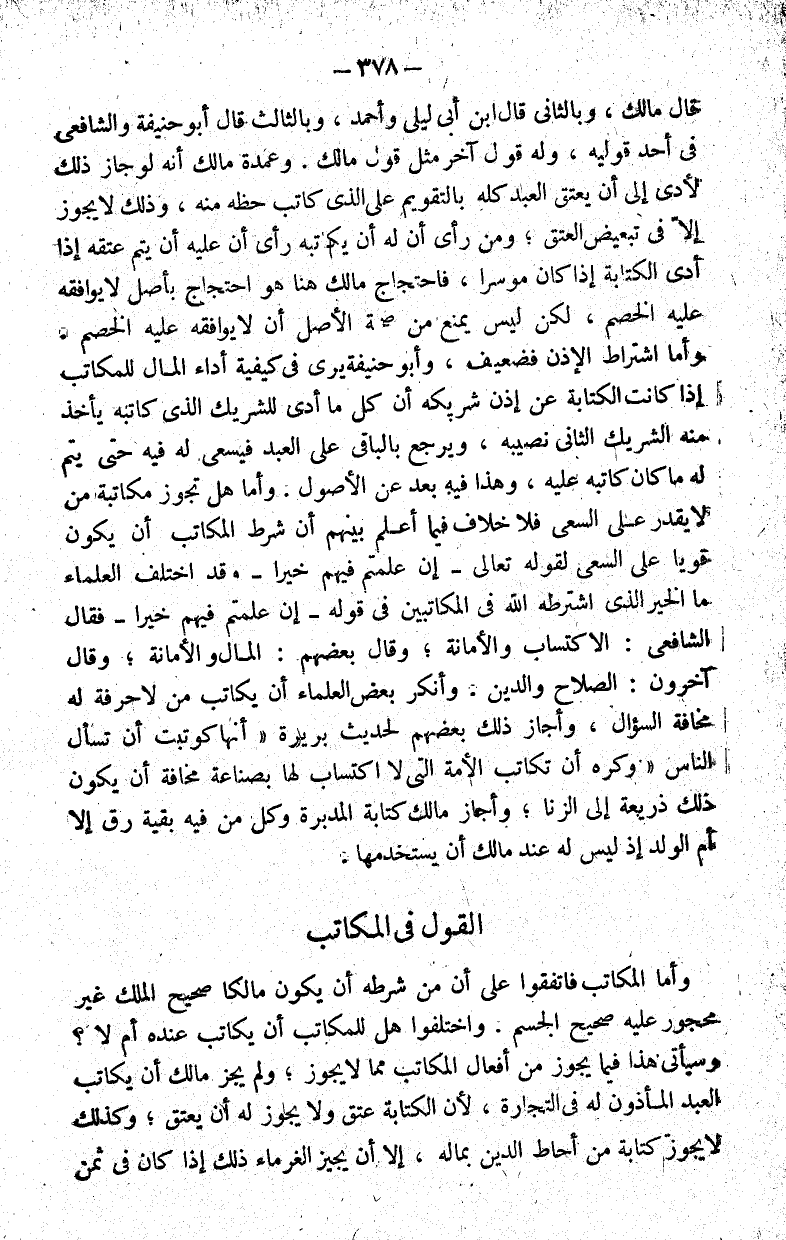 – ٣٧٨ –
قال مالك ، وبالثانى قال ابن أبى ليلى وأحمد ، وبالثالث قال أبو حنيفة والشافعى
فى أحد قوليه ، وله قول آخر مثل قول مالك . وعمدة مالك أنه لو جاز ذلك
لأدى إلى أن يعتق العبد كله بالتقويم على الذى كاتب حظه منه ، وذلك لايجوز
إلاّ فى تبعيض العتق ؛ ومن رأى أن له أن يكاتبه رأى أن عليه أن يتم عتقه إذا
أدى الكتابة إذا كان موسرا ، فاحتجاج مالك هنا هو احتجاج بأصل لايوافقه
عليه الخصم ، لكن ليس يمنع من صحة الأصل أن لايوافقه عليه الخصم .
وأما اشتراط الإذن فضعيف ، وأبو حنيفة يرى فى كيفية أداء المال للمكاتب
إذا كانت الكتابة عن إذن شريكه أن كل ما أدى للشريك الذى كاتبه يأخذ
منه الشريك الثانى نصيبه ، ويرجع بالباقى على العبد فيسعى له فيه حتى يتم
له ما كان كاتبه عليه ، وهذا فيه بعد عن الأصول . وأما هل تجوز مكاتبة من
لايقدر على السعى فلا خلاف فيما أعلم بينهم أن شرط المكاتب أن يكون
قويا على السعى لقوله تعالى – إن علمتم فيهم خيرا – وقد اختلف العلماء
ما الخير الذى اشترطه الله فى المكاتبين فى قوله – إن علمتم فيهم خيرا – فقال
الشافعى : الاكتساب والأمانة ؛ وقال بعضهم : المال والأمانة ؛ وقال
آخرون : الصلاح والدين . وأنكر بعض العلماء أن يكاتب من لاحرفة له
مخافة السؤال ، وأجاز ذلك بعضهم لحديث بريرة « أنها كوتبت أن تسأل
الناس « وكره أن تكاتب الأمة التى لا اكتساب لها بصناعة مخافة أن يكون
ذلك ذريعة إلى الزنا ؛ وأجاز مالك كتابة المدبرة وكل من فيه بقية رق إلا
أم الولد إذ ليس له عند مالك أن يستخدمها .
القول فى المكاتب
وأما المكاتب فاتفقوا على أن من شرطه أن يكون مالكا صحيح الملك غير
محجور عليه صحيح الجسم . واختلفوا هل للمكاتب أن يكاتب عنده أم لا ؟
وسيأتى هذا فيما يجوز من أفعال المكاتب مما لايجوز ؛ ولم يجز مالك أن يكاتب
العبد المأذون له فى التجارة ، لأن الكتابة عتق ولا يجوز له أن يعتق ؛ وكذلك
لايجوز كتابة من أحاط الدين بماله ، إلا أن يجيز الغرماء ذلك إذا كان فى ثمن